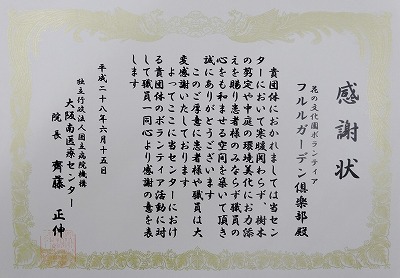 感謝状
花の文化園ボランティア
フルルガーデン倶楽部 殿
貴団体におかれましては当セン
ターにおいて寒暖関わらず、樹木
の剪定や中庭の環境美化にお力添
えを賜り患者様のみならず職員の
心をも和ませる空間を築いて頂き
誠にありがとうございます
このご厚意に患者様や職員は大
変感謝いたしております
よってここに当センターにおけ
る貴団体のボランティア活動に対
して職員一同心より感謝の意を表
します
平成二十八年六月十五日
独立行政法人国立病院機構
大阪南医療センター
院長 齊藤 正伸